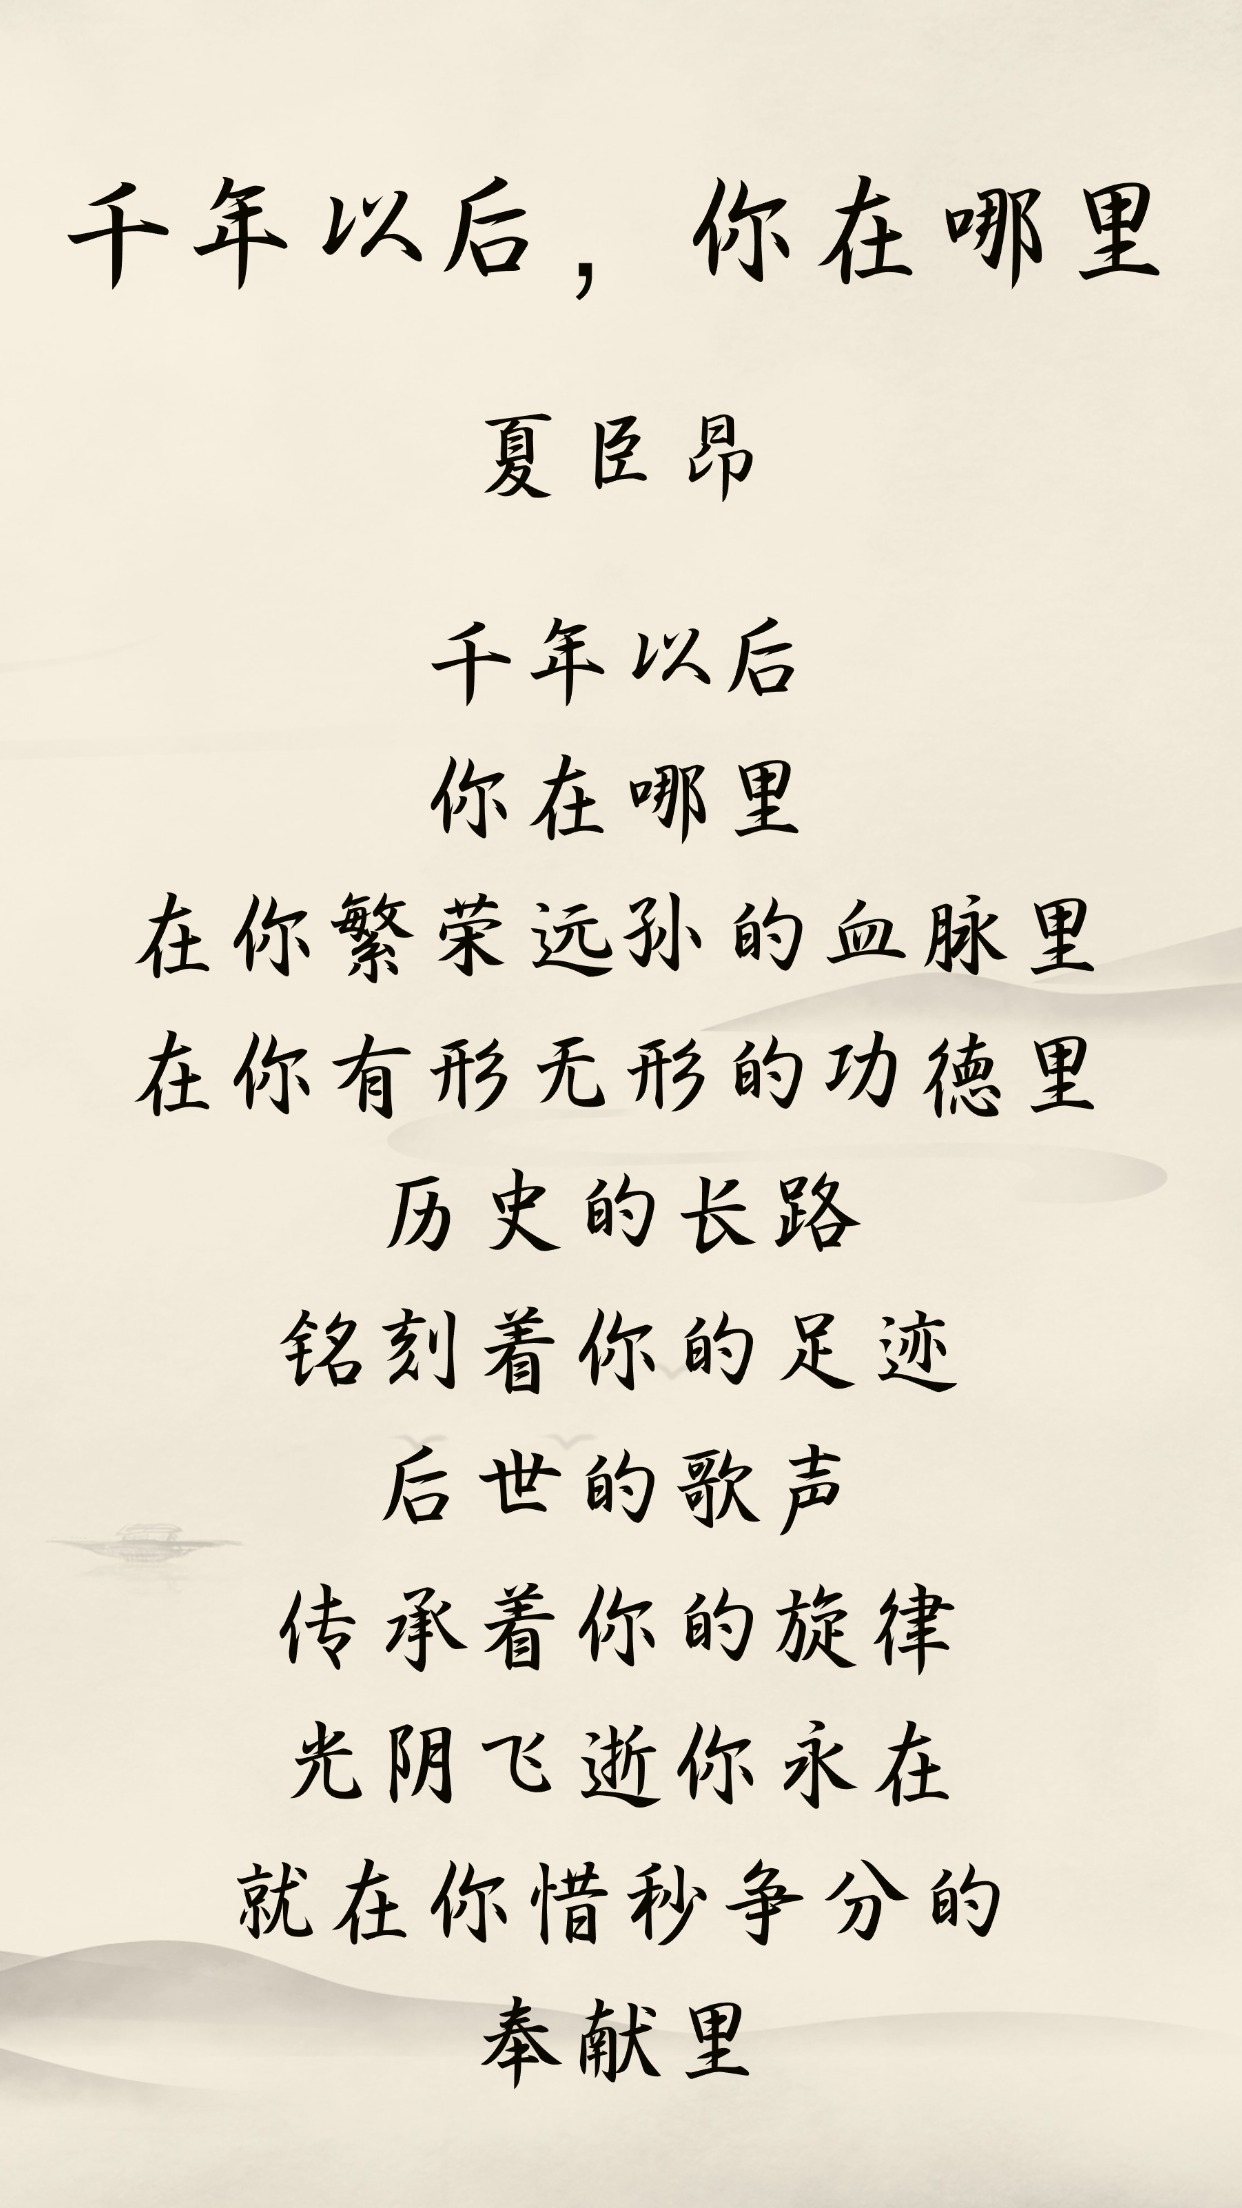 千年以后，你在哪里
夏臣昂
千年以后
你在哪里
在你繁荣远孙的血脉里
在你有形无形的功德里
历史的长路
铭刻着你的足迹
后世的歌声
传承着你的旋律
光阴飞逝你永在
就在你惜秒争分的
奉献里